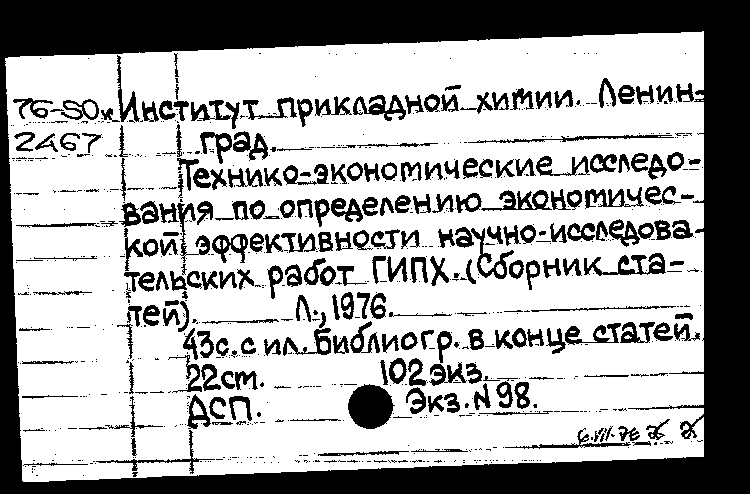 76-SOк Институт прикладной химии. Ленин-
2467 град.
Технико-экономические исследо-
вания по определению экономичес-
кой эффективности научно-исследова-
тельских работ ГИПХ. (Сборник ста-
тей). Л., 1976.
43с. с ил. Библиогр. в конце статей.
22см. 102 экз.
ДСП. Экз. N 98.
6.VII.76